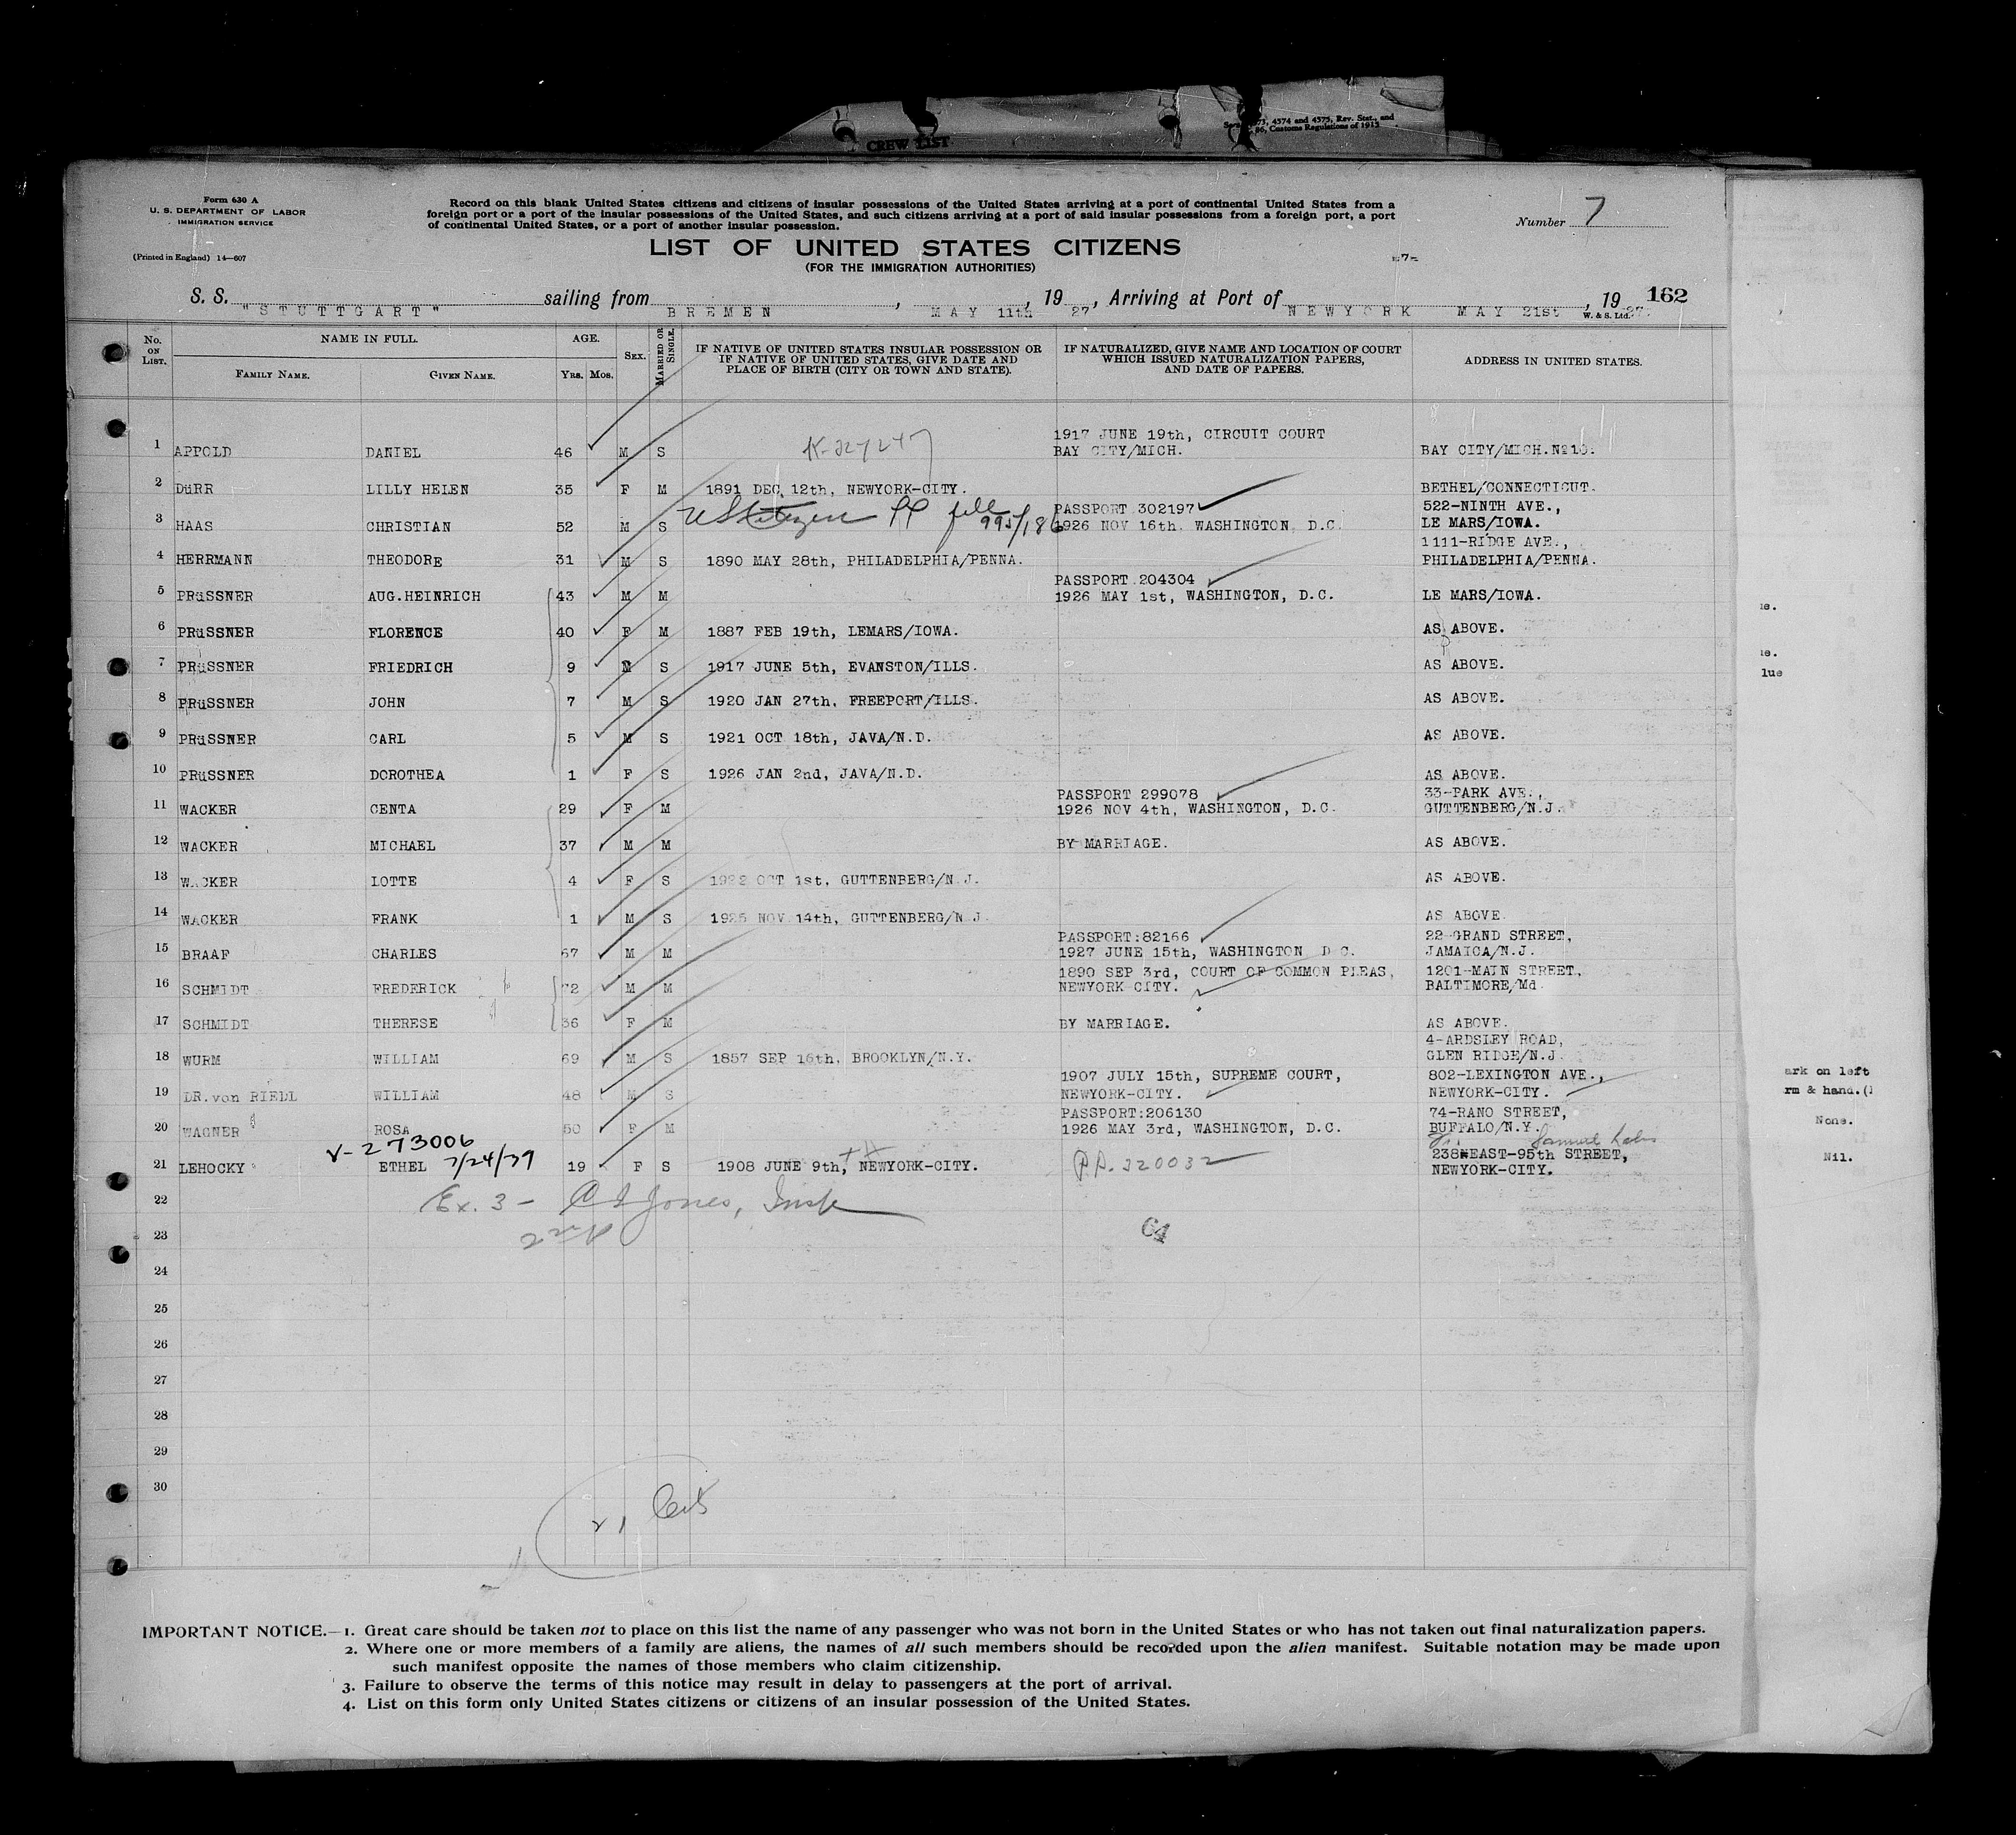 Sers 4573, 4574 and 4575, Rev. Stat., and
86, Customs Regulations of 1915
CREW LIST
Form 630 A
U. S. DEPARTMENT OF LABOR
IMMIGRATION SERVICE
(Printed in England) 14—607
Record on this blank United States citizens and citizens of insular possessions of the United States arriving at a port of continental United States from a
foreign port or a port of the insular possessions of the United States, and such citizens arriving at a port of said insular possessions from a foreign port, a port
of continental United States, or a port of another insular possession.
Number 7
LIST OF UNITED STATES CITIZENS
(FOR THE IMMIGRATION AUTHORITIES)
-7-
S. S. "STUTTGART" sailing from BREMEN, MAY 11th, 1927, Arriving at Port of NEWYORK MAY 21st, 1927.
162
W. & S. Ltd.
No. ON LIST. NAME IN FULL. AGE. SEX. MARRIED OR SINGLE. IF NATIVE OF UNITED STATES INSULAR POSSESSION OR IF NATIVE OF UNITED STATES, GIVE DATE AND PLACE OF BIRTH (CITY OR TOWN AND STATE). IF NATURALIZED, GIVE NAME AND LOCATION OF COURT WHICH ISSUED NATURALIZATION PAPERS, AND DATE OF PAPERS. ADDRESS IN UNITED STATES.
FAMILY NAME. GIVEN NAME. YRS. MOS.
1917 JUNE 19th, CIRCUIT COURT
1 APPOLD DANIEL 46 M S K-227247 BAY CITY/MICH. BAY CITY/MICH.No10.
2 DüRR LILLY HELEN 35 F M 1891 DEC 12th, NEWYORK-CITY. BETHEL/CONNECTICUT.
US Citizen PP PASSPORT 302197 522-NINTH AVE.,
3 HAAS CHRISTIAN 52 M S 995/186 1926 NOV 16th. WASHINGTON, D.C. LE MARS/IOWA.
1111-RIDGE AVE.,
4 HERRMANN THEODORE 31 M S 1890 MAY 28th, PHILADELPHIA/PENNA. PHILADELPHIA/PENNA.
PASSPORT 204304
5 PRüSSNER AUG.HEINRICH 43 M M 1926 MAY 1st, WASHINGTON, D.C. LE MARS/IOWA.
6 PRüSSNER FLORENCE 40 F M 1887 FEB 19th, LEMARS/IOWA. AS ABOVE.
7 PRüSSNER FRIEDRICH 9 M S 1917 JUNE 5th, EVANSTON/ILLS. AS ABOVE.
8 PRüSSNER JOHN 7 M S 1920 JAN 27th, FREEPORT/ILLS. AS ABOVE.
9 PRüSSNER CARL 5 M S 1921 OCT 18th, JAVA/N.D. AS ABOVE.
10 PRüSSNER DOROTHEA 1 F S 1926 JAN 2nd, JAVA/N.D. AS ABOVE.
PASSPORT 299078 33-PARK AVE.,
11 WACKER CENTA 29 F M 1926 NOV 4th, WASHINGTON, D.C. GUTTENBERG/N.J.
12 WACKER MICHAEL 37 M M BY MARRIAGE. AS ABOVE.
13 WACKER LOTTE 4 F S 1922 OCT 1st, GUTTENBERG/N.J. AS ABOVE.
14 WACKER FRANK 1 M S 1925 NOV 14th, GUTTENBERG/N.J. AS ABOVE.
PASSPORT:82166 22-GRAND STREET,
15 BRAAF CHARLES 67 M M 1927 JUNE 15th, WASHINGTON D.C. JAMAICA/N.J.
1890 SEP 3rd, COURT OF COMMON PLEAS, 1201-MAIN STREET,
16 SCHMIDT FREDERICK 72 M M NEWYORK-CITY. BALTIMORE/Md.
17 SCHMIDT THERESE 36 F M BY MARRIAGE. AS ABOVE.
4-ARDSLEY ROAD,
18 WURM WILLIAM 69 M S 1857 SEP 16th, BROOKLYN/N.Y. GLEN RIDGE/N.J.
1907 JULY 15th, SUPREME COURT, 802-LEXINGTON AVE.,
19 DR.von RIELL WILLIAM 48 M S NEWYORK-CITY. NEWYORK-CITY.
PASSPORT:206130 74-RANO STREET,
20 WAGNER ROSA 50 F M 1926 MAY 3rd, WASHINGTON, D.C. BUFFALO/N.Y.
V-273006 7/24/39 Samuel
238-EAST-95th STREET,
21 LEHOCKY ETHEL 19 F S 1908 JUNE 9th, NEWYORK-CITY. P.P. 320032 NEWYORK-CITY.
22 Ex. 3 - Jones, Insp
23 64
24
25
26
27
28
29
30
21
ie.
ie.
lue
ark on left
rm & hand.(
None.
Nil.
IMPORTANT NOTICE.—1. Great care should be taken not to place on this list the name of any passenger who was not born in the United States or who has not taken out final naturalization papers.
2. Where one or more members of a family are aliens, the names of all such members should be recorded upon the alien manifest. Suitable notation may be made upon
such manifest opposite the names of those members who claim citizenship.
3. Failure to observe the terms of this notice may result in delay to passengers at the port of arrival.
4. List on this form only United States citizens or citizens of an insular possession of the United States.